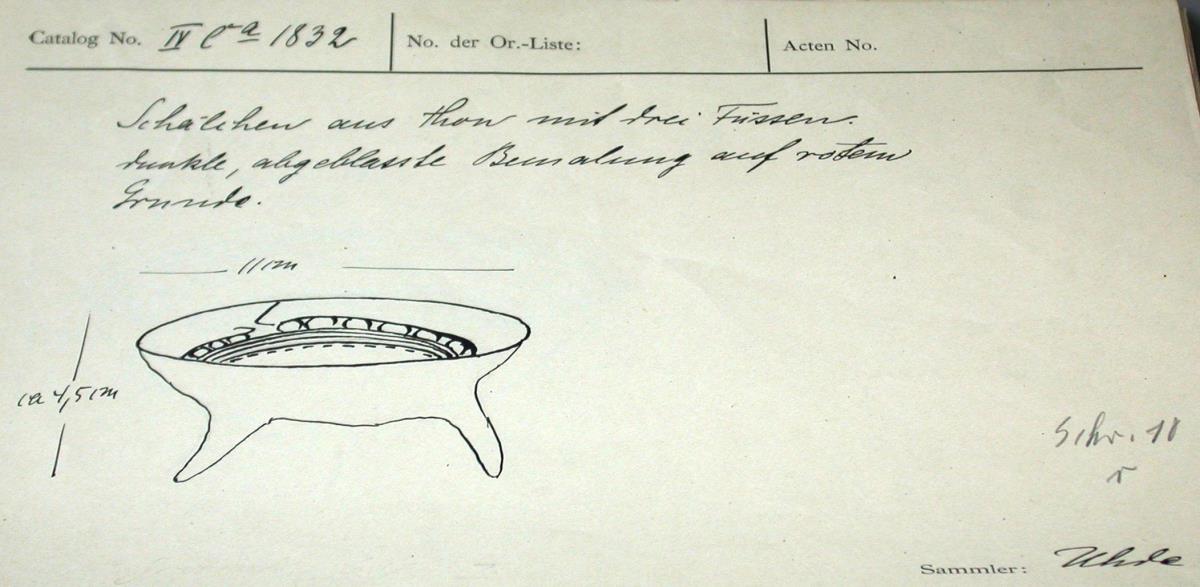 Catalog No. IV Ca 1832 No. der Or.-Liste: Acten No.
Schälchen aus Thon mit drei Füssen.
dunkle, abgeblasste Bemalung auf rotem
Grunde.
11 cm
ca 4,5 cm
Schr. 10
r
Sammler: Uhde